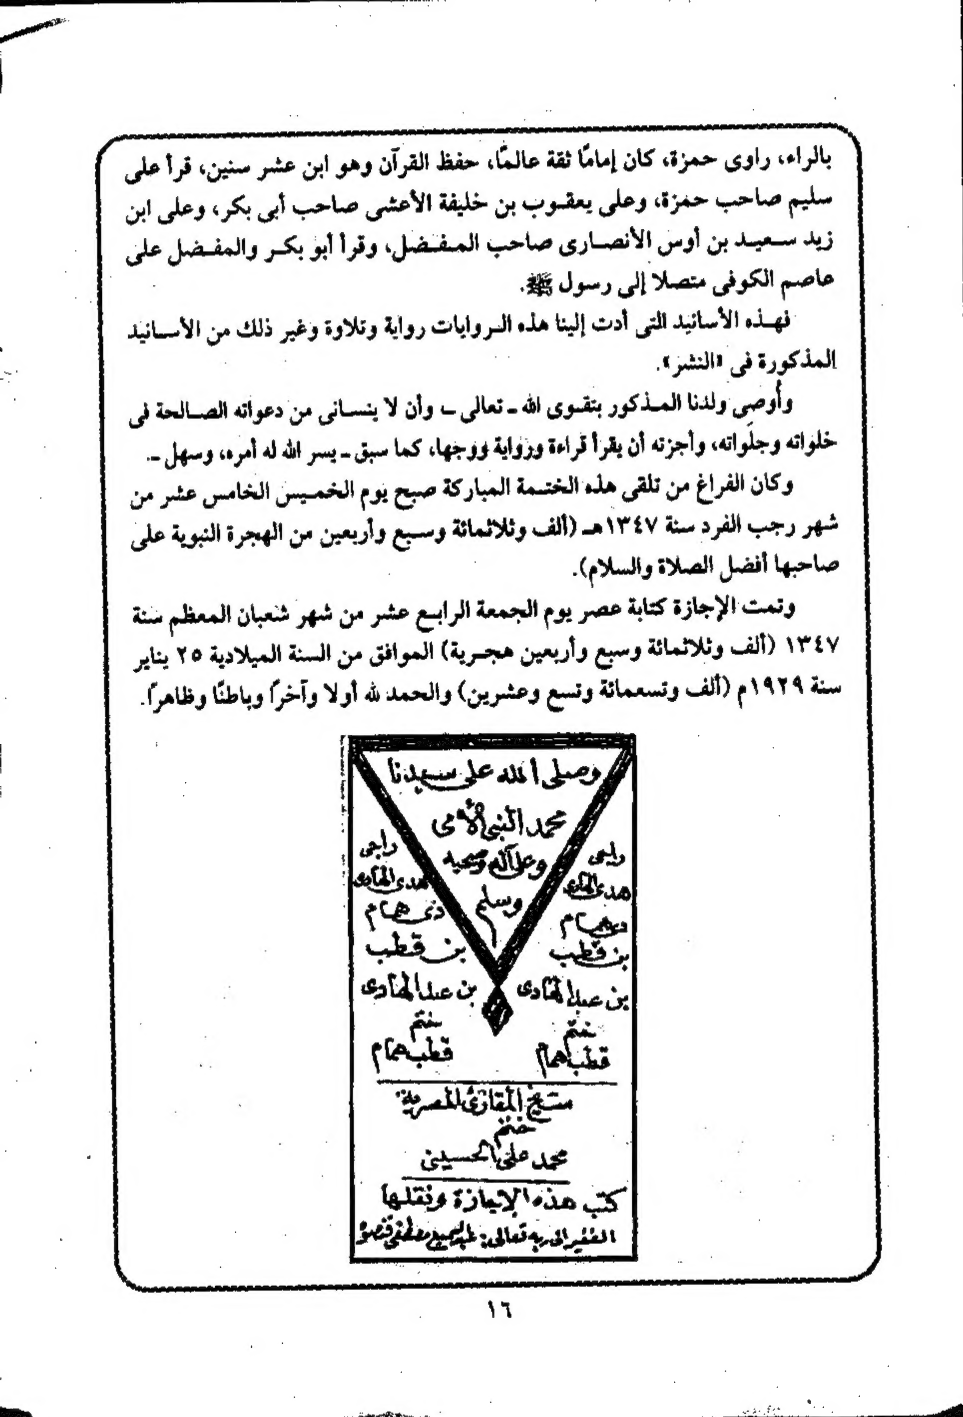 بالراء، راوى حمزة، كان إمامًا ثقة عالمًا، حفظ القرآن وهو ابن عشر سنين، قرأ على
سليم صاحب حمزة، وعلى يعقوب بن خليفة الأعشى صاحب أبى بكر، وعلى ابن
زيد سعيد بن أوس الأنصارى صاحب المفضل، وقرأ أبو بكر والمفضل على
عاصم الكوفى متصلا إلى رسول ﷺ.
فهذه الأسانيد التى أدت إلينا هذه الروايات رواية وتلاوة وغير ذلك من الأسانيد
المذكورة فى «النشر».
وأُوصِى ولدنا المذكور بتقوى الله ـ تعالى ـ وأن لا ينسانى من دعواته الصالحة فى
خلواته وجلَواته، وأجزته أن يقرأ قراءة ورواية ووجها، كما سبق ـ يسر الله له أمره، وسهل ـ.
وكان الفراغ من تلقى هذه الختمة المباركة صبح يوم الخميس الخامس عشر من
شهر رجب الفرد سنة ١٣٤٧هـ (ألف وثلاثمائة وسبع وأربعين من الهجرة النبوية على
صاحبها أفضل الصلاة والسلام).
وتمت الإجازة كتابة عصر يوم الجمعة الرابع عشر من شهر شعبان المعظم سنة
١٣٤٧ (ألف وثلاثمائة وسبع وأربعين هجرية) الموافق من السنة الميلادية ٢٥ يناير
سنة ١٩٢٩م (ألف وتسعمائة وتسع وعشرين) والحمد لله أولا وآخرًا وباطنًا وظاهرًا.
وصلى الله على سيدنا
محمد النبى الأمى
وعلى آله وصحبه
وسلم
راجى
هدى الهادى
ذى همام
بن قطب
بن عبد الهادى
ختم
قطب همام
راجى
هدى الهادى
ذى همام
بن قطب
بن عبد الهادى
ختم
قطب همام
مشيخ المقارئ المصرية
ختم
محمد على الحسينى
كتب هذه الإجازة ونقلها
الفقير الى ربه تعالى: عبد السميع مصطفى قنصوه
١٦